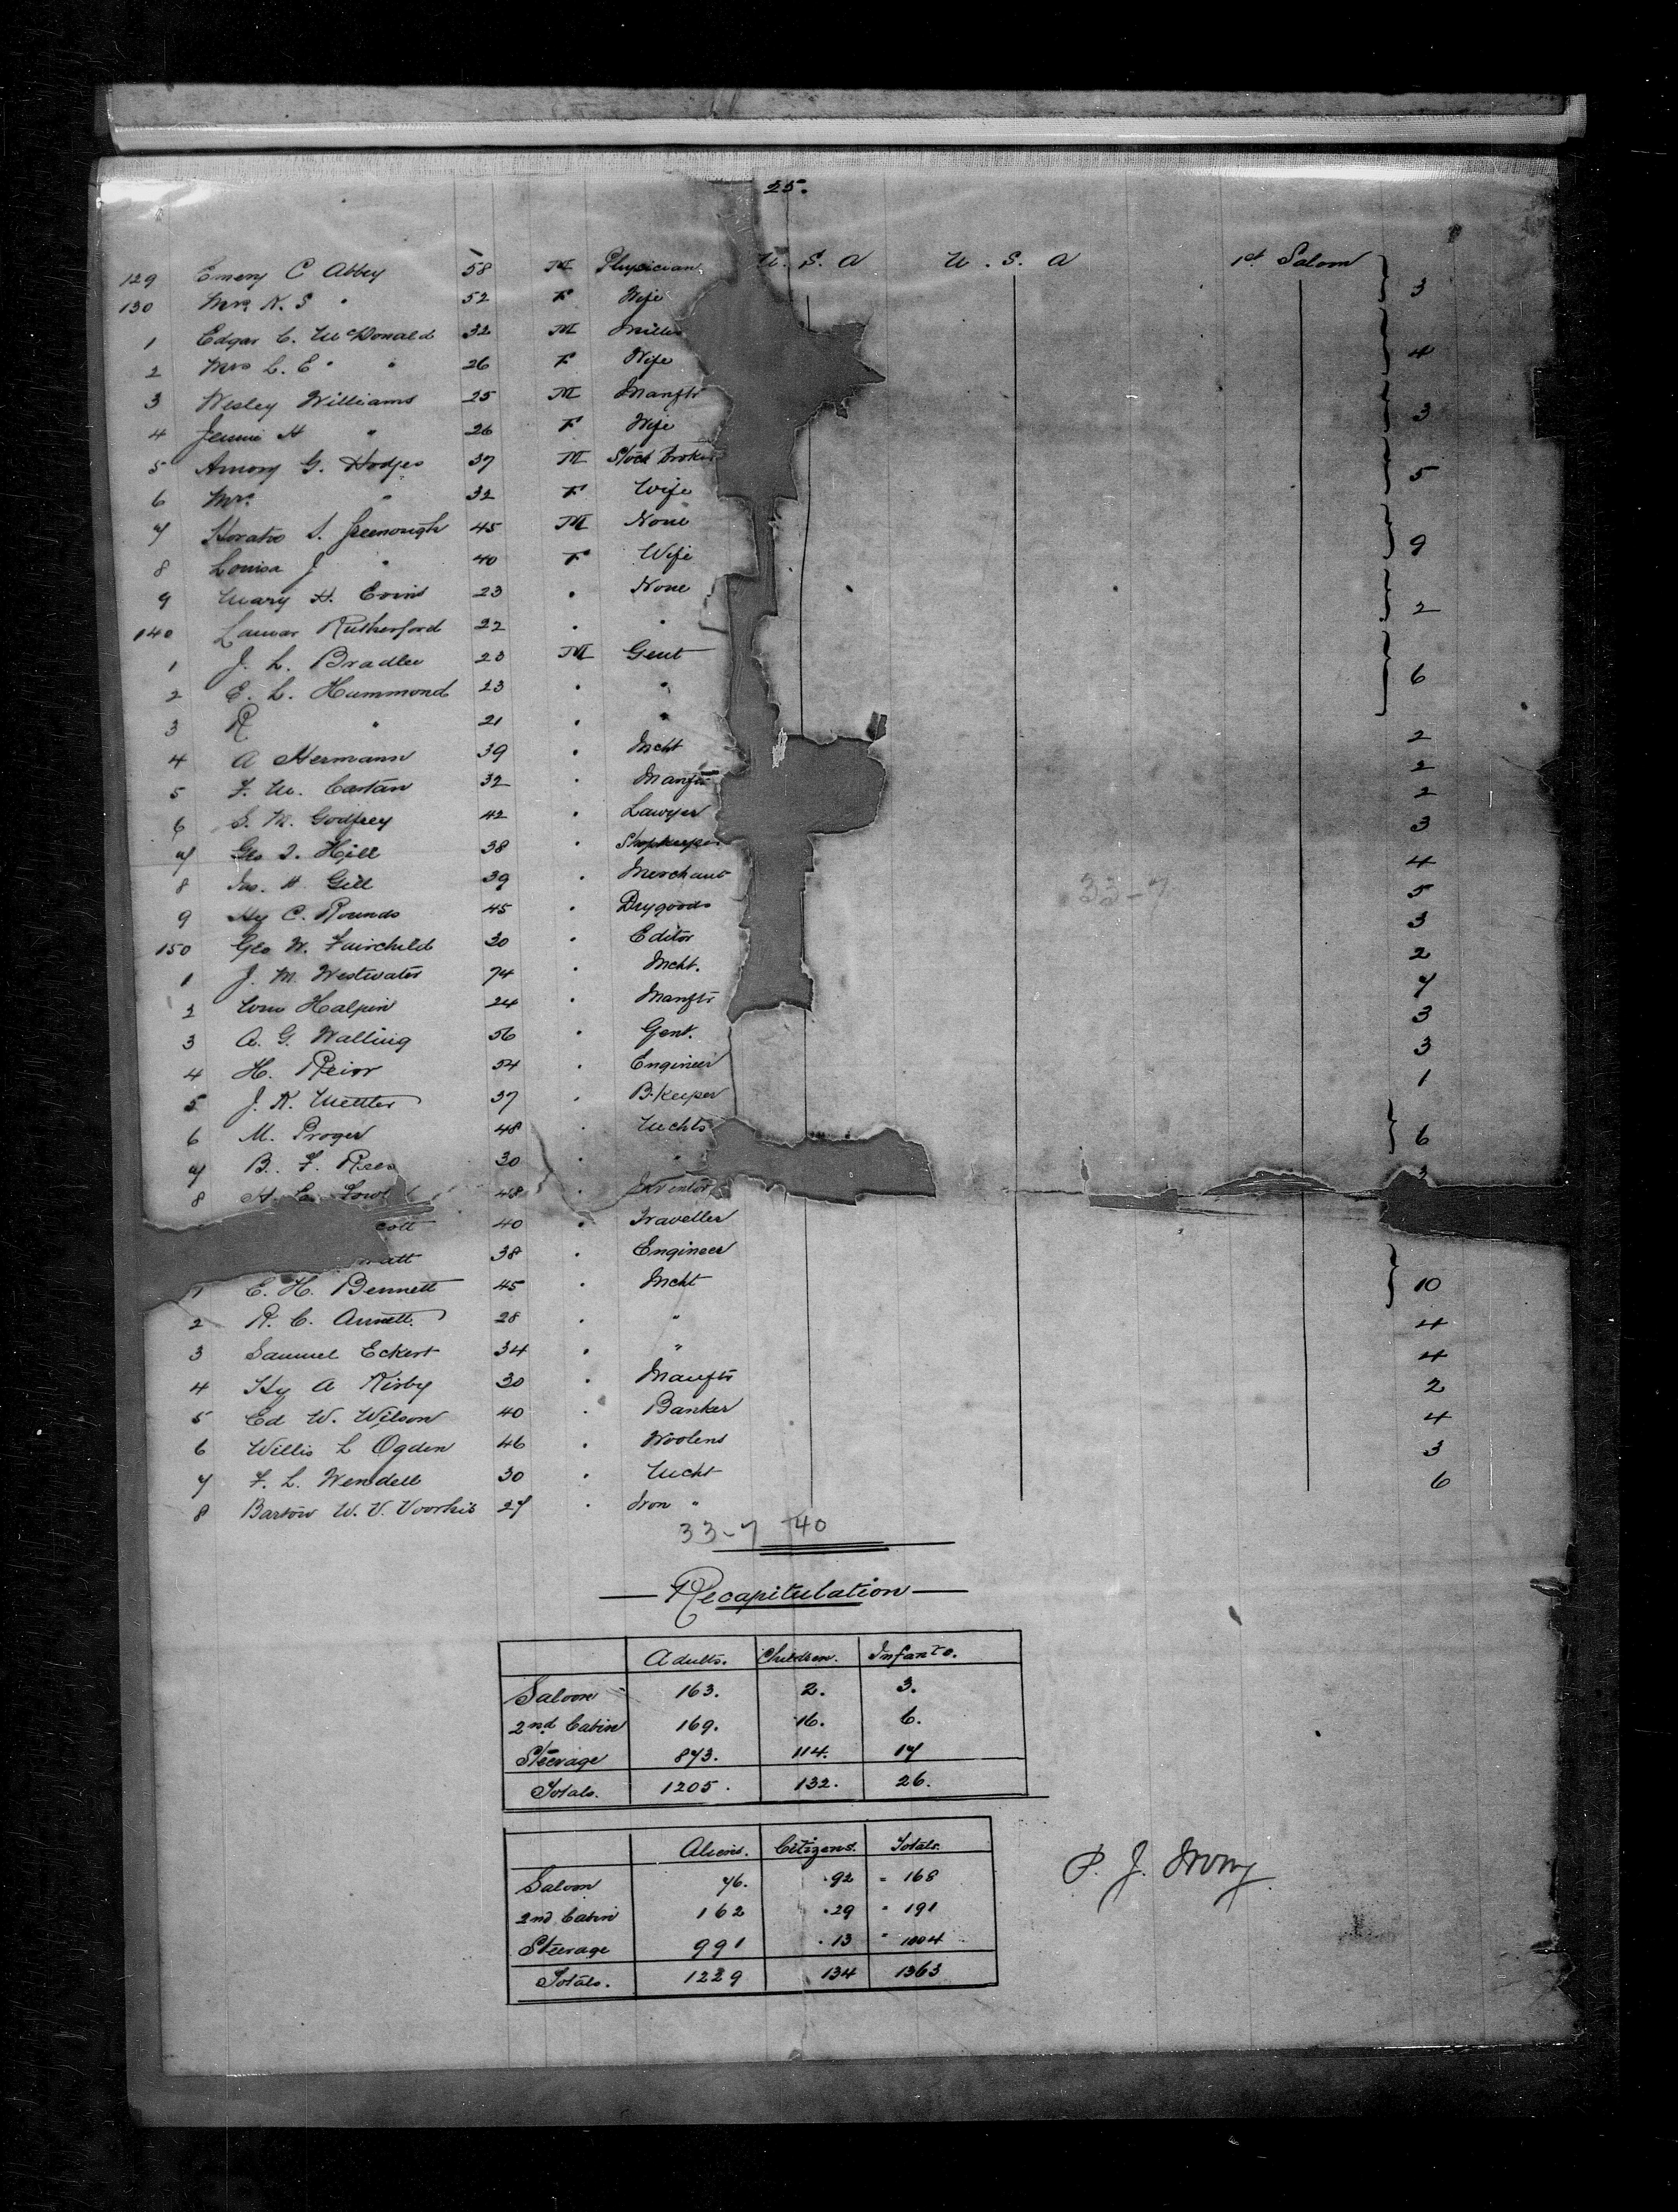 25.
129 Emery C Abbey 58 M Physician U.S.A U.S.A 1st Saloon
130 Mrs N. S " 52 F Wife 3
1 Edgar C. McDonald 32 M Miller
2 Mrs L. E " " 26 F Wife 4
3 Wesley Williams 25 M Manftr
4 Jennie H " 26 F Wife 3
5 Amory G. Hodges 37 M Stock Broker
6 Mrs " 32 F Wife 5
7 Horatio S. Greenough 45 M None
8 Louisa J " 40 F Wife 9
9 Mary H. Evins 23 " None
140 Lamar Rutherford 22 " " 2
1 J. L. Bradlee 23 M Gent
2 E. L. Hammond 23 " " 6
3 R " 21 " "
4 A Hermann 39 " Mcht 2
5 F. M. Castan 32 " Manftr 2
6 S. M. Godfrey 42 " Lawyer 2
7 Geo I. Hill 38 " Shopkeeper 3
8 Jas. H. Gill 39 " Merchant 4
33-7
9 Hy C. Rounds 45 " Drygoods 5
150 Geo W. Fairchild 30 " Editor 3
1 J. M. Westwater 74 " Mcht. 2
2 Wm Halpin 24 " Manftr 7
3 A. G. Walling 56 " Gent. 3
4 H. Reior 54 " Engineer 3
5 J. K. Mettler 37 " B-Keeper 1
6 M. Proger 48 " Mchts
7 B. F. Rees 30 " " 6
8 H E 48 " Inventor 3
cott 40 " Traveller
ratt 38 " Engineer
1 E. H. Bennett 45 " Mcht 10
2 R. C. Annett. 28 " " 4
3 Samuel Eckert 34 " " 4
4 Hy A Kirby 30 " Manftr 2
5 Ed W. Wilson 40 " Banker 4
6 Willis L Ogden 46 " Woolens 3
7 F. L. Wendell 30 " Mcht 6
8 Barton W. V. Voorhis 27 " Iron "
33-7 40
Recapitulation
Adults. Children. Infants.
Saloon 163. 2. 3.
2nd Cabin 169. 16. 6.
Steerage 873. 114. 17
Totals. 1205. 132. 26.
Aliens. Citizens. Totals.
Saloon 76. 92 = 168
2nd Cabin 162 29 " 191
Steerage 991 13 " 1004
Totals. 1229 134 1363
P. J.